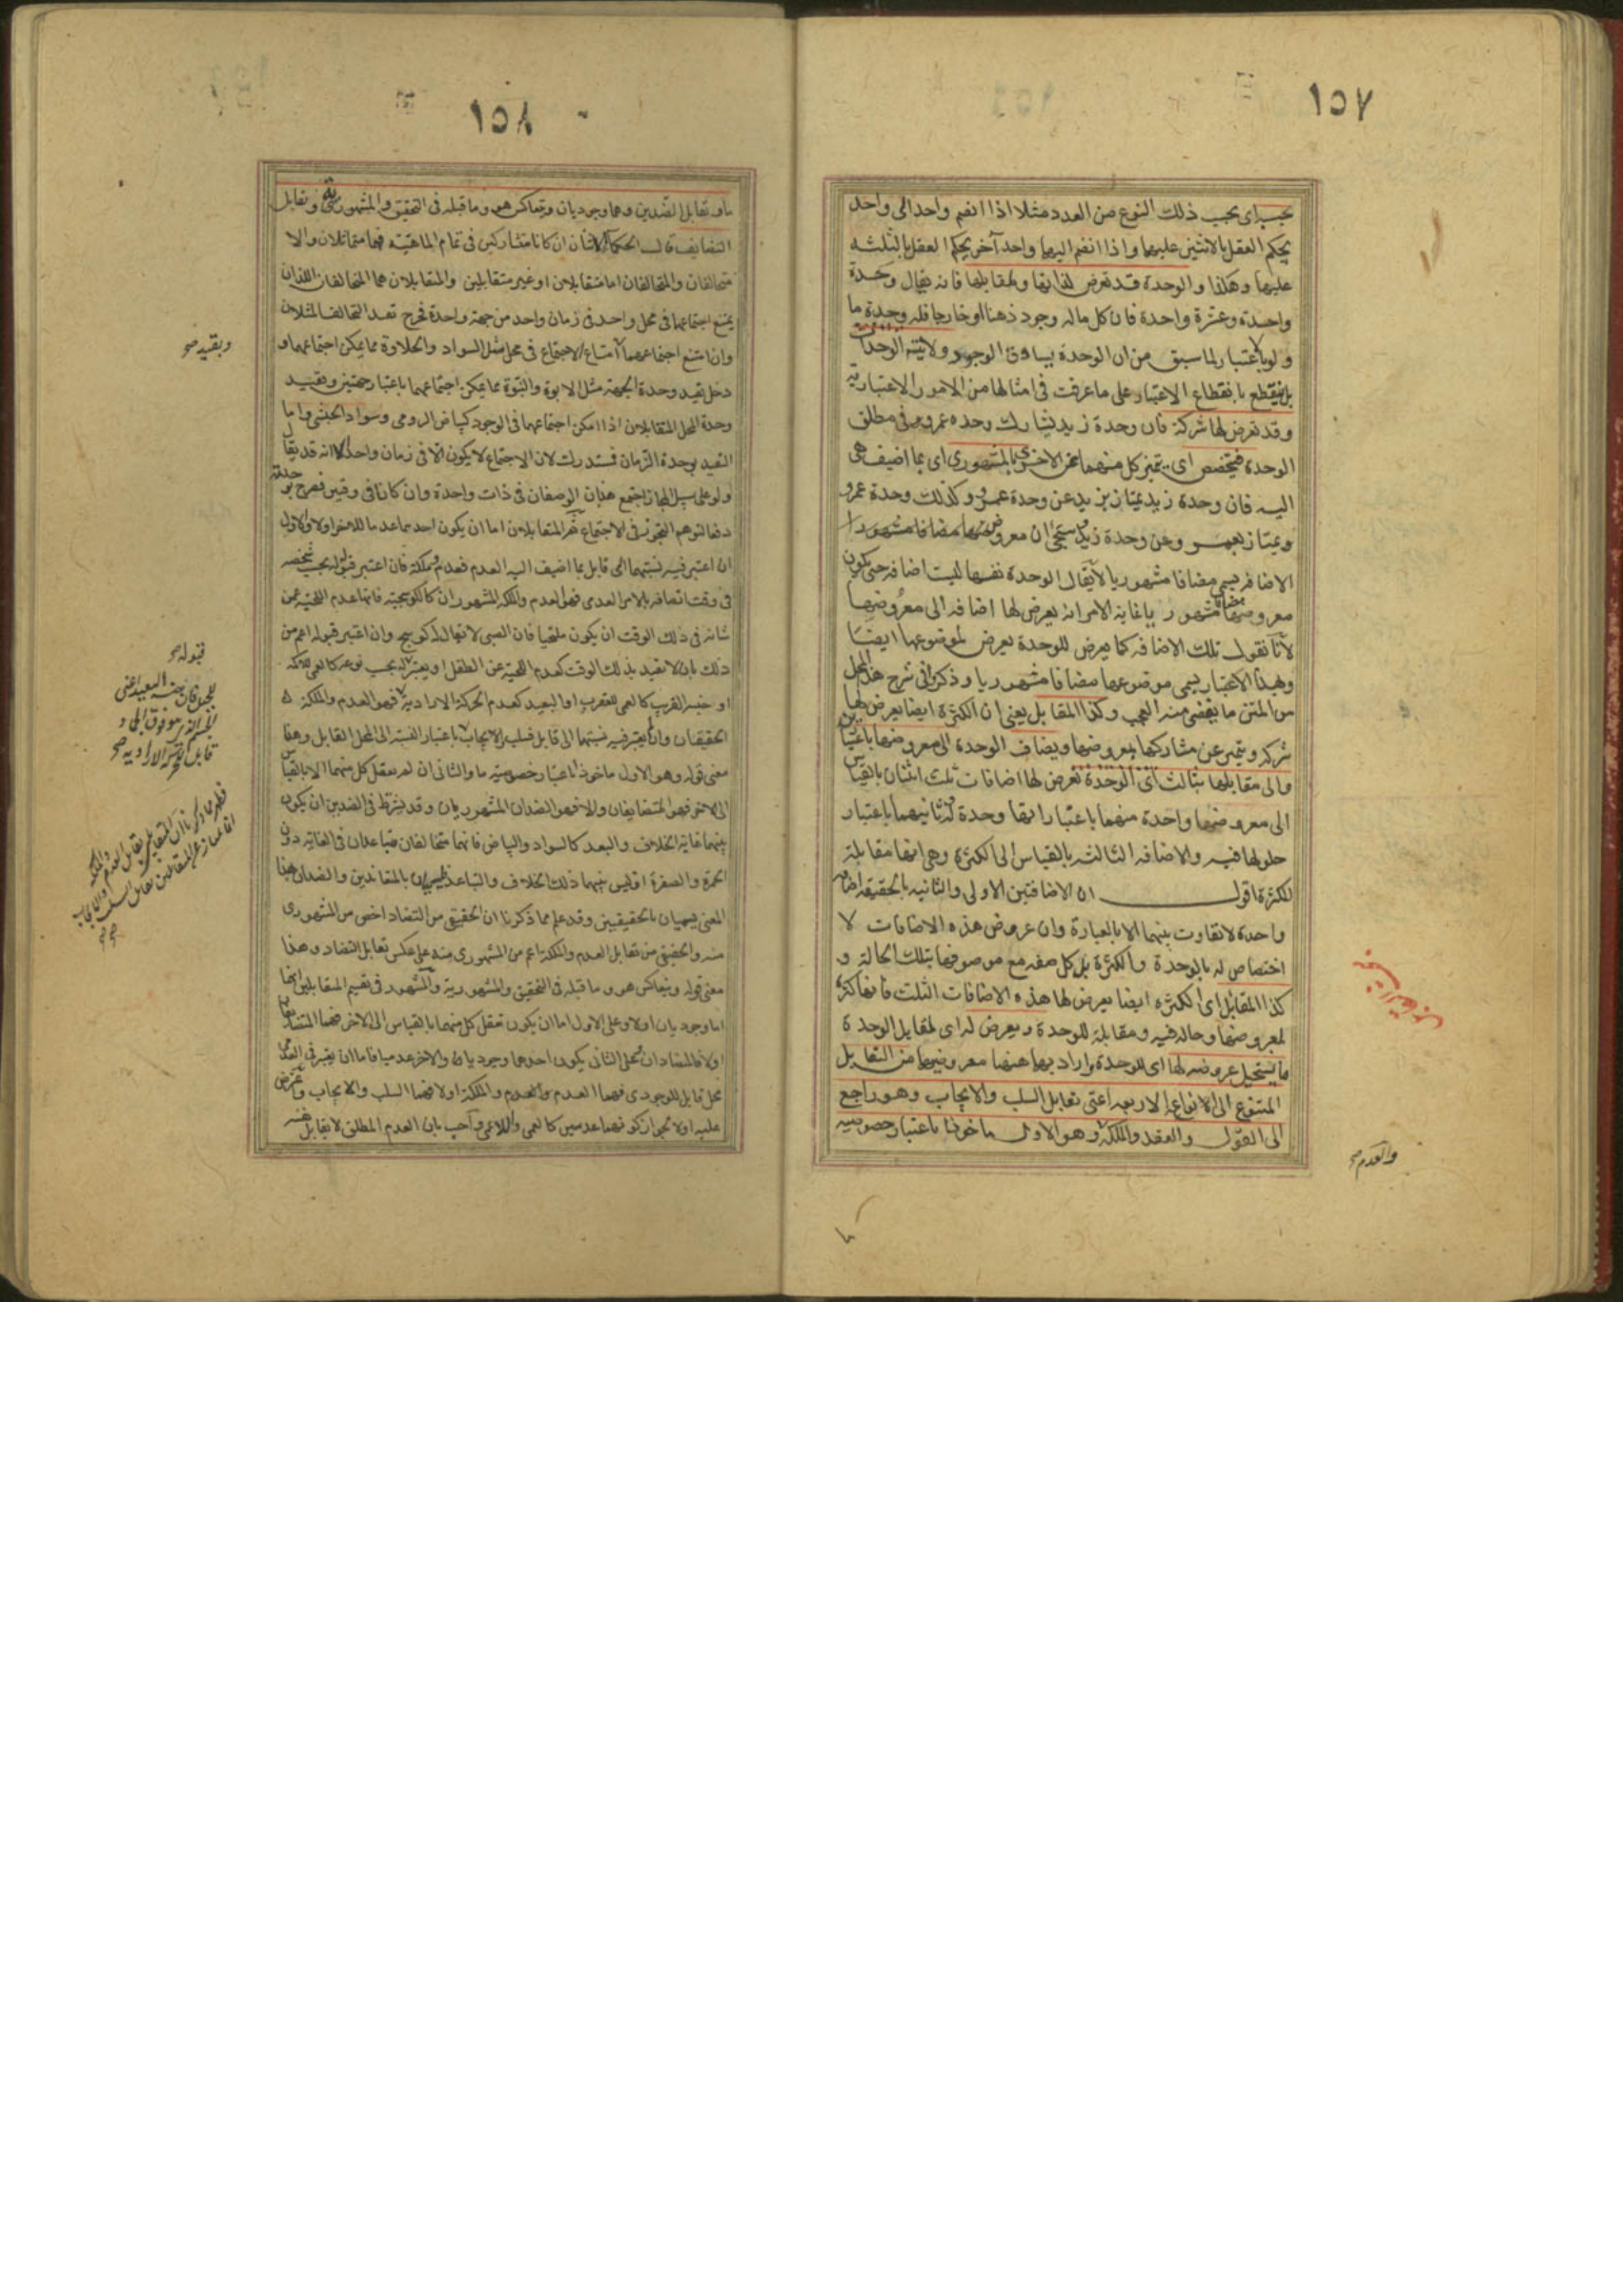 ١٥٧
بحسبه اى بحسب ذلك النوع من العدد مثلا اذا انضم واحد الى واحد
يحكم العقل بالاثنين عليهما واذا انضم اليهما واحد آخر يحكم العقل بالثلثه
عليها وهكذا والوحدة قد تعرض لذاتها ولمقابلها فانه يقال وحدة
واحدة وعشرة واحدة فان كل ماله وجود ذهنا او خارجا فله وحدة ما
ولو بالاعتبار لما سبق من ان الوحدة يساوق الوجود ولا يتم الوحدات
بل ينقطع بانقطاع الاعتبار على ما عرفت فى امثالها من الامور الاعتبارية
وقد تعرض لها شركة فان وحدة زيد تشارك وحده عمرو فى مطلق
الوحدة فيتخصص اى يتميز كل منهما عن الاخرى بالمشهورى اى بما اضيف هى
اليه فان وحدة زيد يمتاز بزيد عن وحدة عمرو وكذلك وحدة عمرو
ويمتاز بعمرو وعن وحدة زيد سيجئ ان معروض مضافا مشهورا
الاضافة يسمى مضافا مشهوريا لا يقال الوحدة نفسها ليست اضافه حتى يكون
معروضها مضافا مشهوريا غاية الامر انه يعرض لها اضافه الى معروضها
لانا نقول تلك الاضافه كما يعرض للوحدة يعرض لموضوعها ايضا
وبهذا الاعتبار يسمى موضوعها مضافا مشهوريا وذكر فى شرح هذا المحل
من المتن ما يقضى منه العجب وكذا المقابل يعنى ان الكثرة ايضا يعرض لها
شركه ويتميز عن مشاركها بمعروضها ويضاف الوحدة الى معروضها باعتبارين
والى مقابلها بثالث اى الوحدة تعرض لها اضافات ثلث اثنتان بالقياس
الى معروضها واحدة منهما باعتبار انها وحدة له وثانيهما باعتبار
حلولها فيه والاضافه الثالثه بالقياس الى الكثرة وهى انها مقابلة
للكثرة اقول ان الاضافتين الاولى والثانيه بالحقيقه اضافه
واحدة لا تفاوت بينهما الا بالعبارة وان عروض هذه الاضافات لا
اختصاص له بالوحدة والكثرة بل كل صفه مع موصوفها بتلك الحالة و
كذا المقابل اى الكثره ايضا يعرض لها هذه الاضافات الثلث فانها كثرة
لمعروضها وحاله فيه ومقابلة للوحدة ويعرض له اى لمقابل الوحدة
ما يستحيل عروضه لها اى للوحدة واراد بها ههنا معروضها من التقابل
المتنوع الى الانواع الاربعه اعنى تقابل السلب والايجاب وهو راجع
الى القول والعقد والملكة وهو الاول ماخوذا باعتبار خصوصية
والعدم صح
١٥٨
ما وتقابل الضدين وهما وجوديان ويتعاكس هو وما قبله فى التحقيق والمشهورية وتقابل
التضايف قالت الحكماء الاثنان ان كانا متشاركين فى تمام الماهية فهما متماثلان والا
متخالفان والمتخالفان اما متقابلان او غير متقابلين والمتقابلان هما المتخالفان اللذان
يمتنع اجتماعهما فى محل واحد فى زمان واحد من جهة واحدة فخرج بقيد التخالف المثلان
وان امتنع اجتماعهما امتناع الاجتماع فى محل مثل السواد والحلاوة مما يمكن اجتماعهما و
دخل بقيد وحدة الجهة مثل الابوة والبنوة مما يمكن اجتماعهما باعتبار جهتين وبقيد
وحدة المحل المتقابلان اذا امكن اجتماعهما فى الوجود كبياض الرومى وسواد الحبشى واما
التقييد بوحدة الزمان فمستدرك لان الاجتماع لا يكون الا فى زمان واحد الا انه قد يقال
ولو على سبيل المجاز اجتمع هذان الوصفان فى ذات واحدة وان كانا فى وقتين فصرح بوحدته
دفعا لتوهم التجوز فى الاجتماع ثم المتقابلان اما ان يكون احدهما عدما للاخر اولا والاول
ان اعتبر فيه نسبتهما الى قابل بما اضيف اليه العدم فعدم وملكة فان اعتبر قبوله بحسب شخصه
فى وقت اتصافه بالامر العدمى فهو العدم والملكة المشهوران كالكوسجية فانها عدم اللحية عمن
شانه فى ذلك الوقت ان يكون ملتحيا فان الصبى لا يقال له كوسج وان اعتبر قبوله اعم من
ذلك بان لا يقيد بذلك الوقت كعدم اللحية عن الطفل او يعتبر قبوله بحسب نوعه كالعمى للاكمه
او جنسه القريب كالعمى للعقرب او البعيد كعدم الحركة الارادية فهو العدم والملكة
الحقيقيان وان لم يعتبر فيه نسبتهما الى قابل فسلب والايجاب باعتبار النسبة الى المحل القابل وهذا
معنى قوله وهو الاول ماخوذا باعتبار خصوصية ما والثانى ان لم يعقل كل منهما الا بالقياس
الى الاخر فهو المتضايفان والا فهو الضدان المشهوريان وقد يشترط فى الضدين ان يكون
بينهما غاية الخلاف والبعد كالسواد والبياض فانهما متخالفان متباعدان فى الغاية دون
الحمرة والصفرة اذ ليس بينهما ذلك الخلاف والتباعد فيسميان بالمتعاندين والضدان بهذا
المعنى يسميان بالحقيقيين وقد علم مما ذكرنا ان الحقيقى من التضاد اخص من المشهورى
منه والحقيقى من تقابل العدم والملكة اعم من المشهورى منه على عكس تقابل التضاد وهذا
معنى قوله ويتعاكس هو وما قبله فى التحقيق والمشهورية والمشهور فى تقسيم المتقابلين انهما
اما وجوديان اولا وعلى الاول اما ان يكون تعقل كل منهما بالقياس الى الاخر فهما المتضايفان
اولا فالمتضادان وعلى الثانى يكون احدهما وجوديا والاخر عدميا فاما ان يعتبر فى العدمى
محل قابل للوجودى فهما العدم والملكة اولا فهما السلب والايجاب واعترض
عليه اولا بجواز كونهما عدميين كالعمى واللاعمى واجيب بان العدم المطلق لا يقابل نفسه
وبقيد صح
قبوله صح